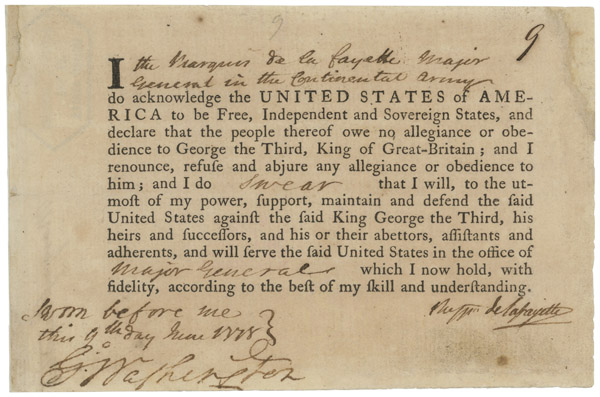 9
9
I the Marquis de la Fayette Major
General in the Continental Army
do acknowledge the UNITED STATES of AME-
RICA to be Free, Independent and Sovereign States, and
declare that the people thereof owe no allegiance or obe-
dience to George the Third, King of Great-Britain; and I
renounce, refuſe and abjure any allegiance or obedience to
him; and I do swear that I will, to the ut-
moſt of my power, ſupport, maintain and defend the ſaid
United States againſt the ſaid King George the Third, his
heirs and ſucceſſors, and his or their abettors, aſſiſtants and
adherents, and will ſerve the ſaid United States in the office of
Major General which I now hold, with
fidelity, according to the beſt of my skill and underſtanding.
Sworn before me
this 9th day June 1778
de Lafayette
Go Washington